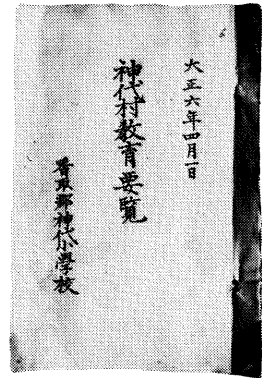 大正六年四月一日
神代村教育要覧
香取郡神代小學校